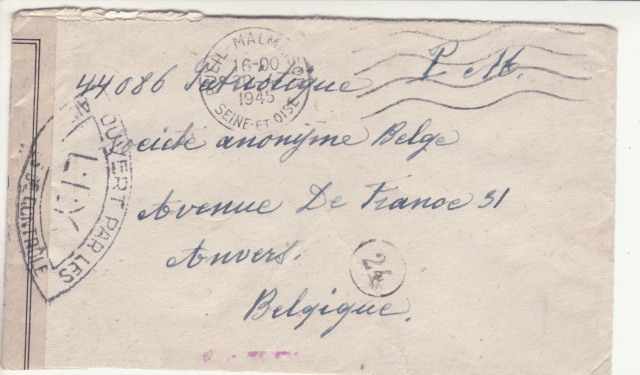 RUEIL-MALMAISON
16-00
1945
SEINE-ET-OISE
44086 Patriotique P.M.
Société anonyme Belge
Avenue De France 31
Anvers.
Belgique.
OUVERT PAR LES
CONTRÔLE
24